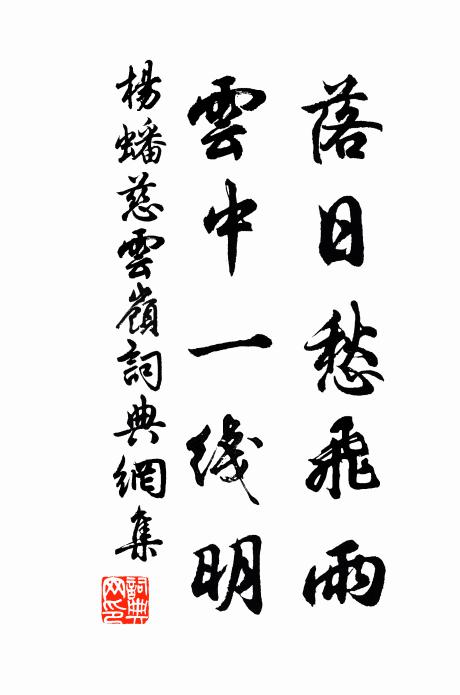 落日愁飛雨
雲中一线明
楊蟠慈雲嶺詞典網集
詞典網印